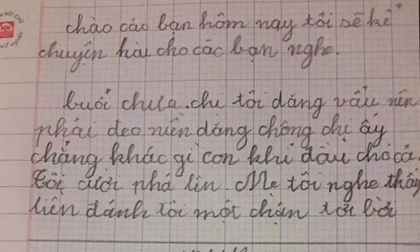 chào cáo bạn hôm nay tôi sẽ kể
chuyện hài cho các bạn nghe.
buổi chưa. chị tôi đăng vẩu nên
phải đeo niền dăng chồng chị ấy
chẳng khác gì con khỉ đầu chó cả.
Tôi cười phá lin. Mẹ tôi nghe thấy
liền đánh tôi một chận tơi bời